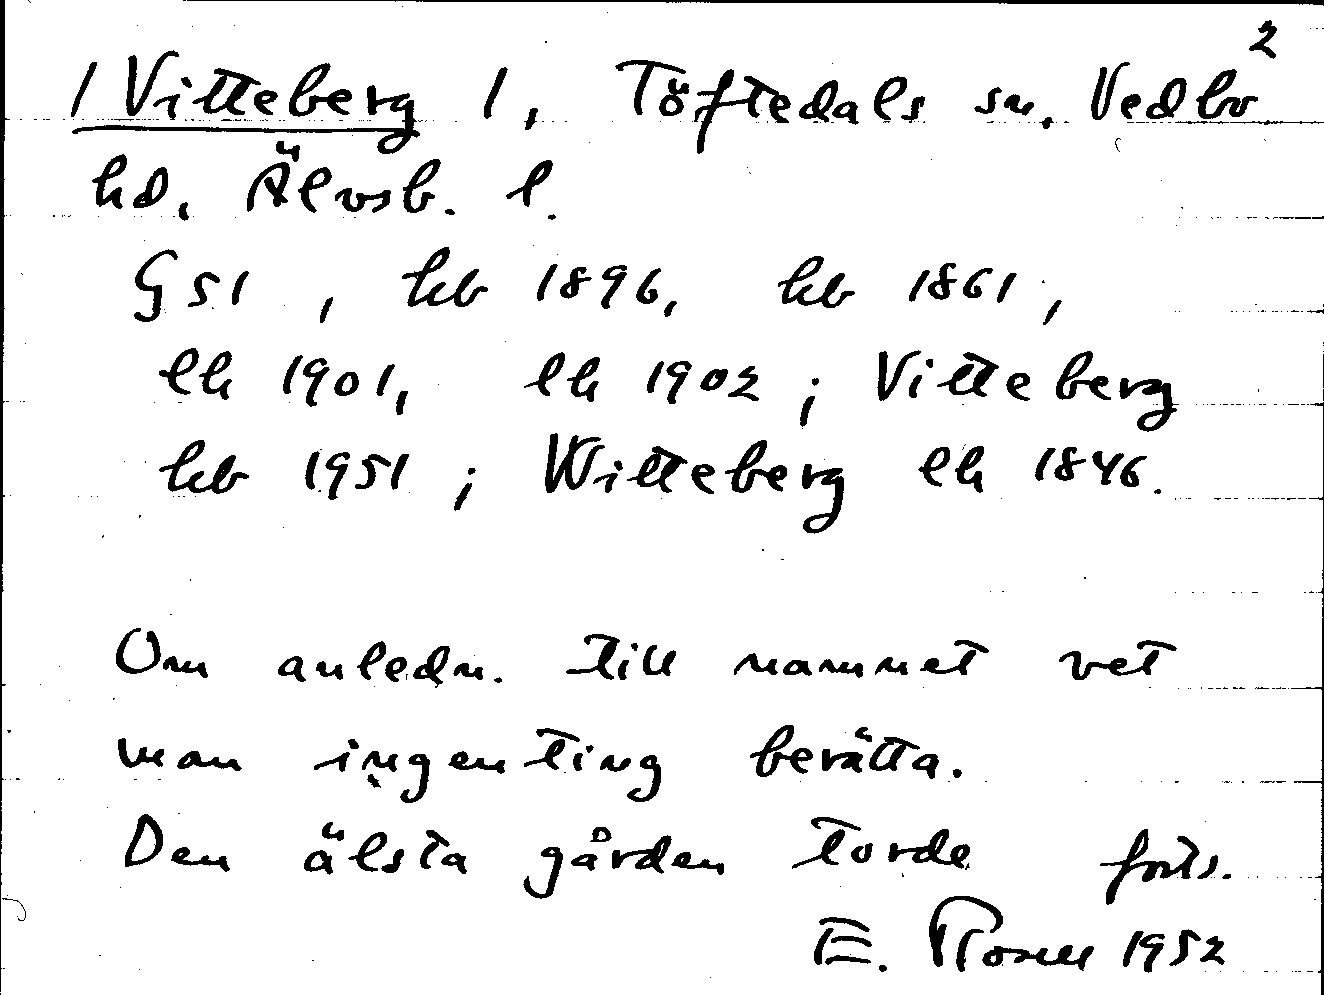 2
/ Vitteberg /, Töftedals sn. Vedbo
hd. Älvsb. l.
G 51, kb 1896, kb 1861,
lh 1901, lh 1902; Vitteberg
kb 1951; Witteberg lh 1846.
Om anledn. till namnet vet
man ingenting berätta.
Den älsta gården torde forts.
E. 1952